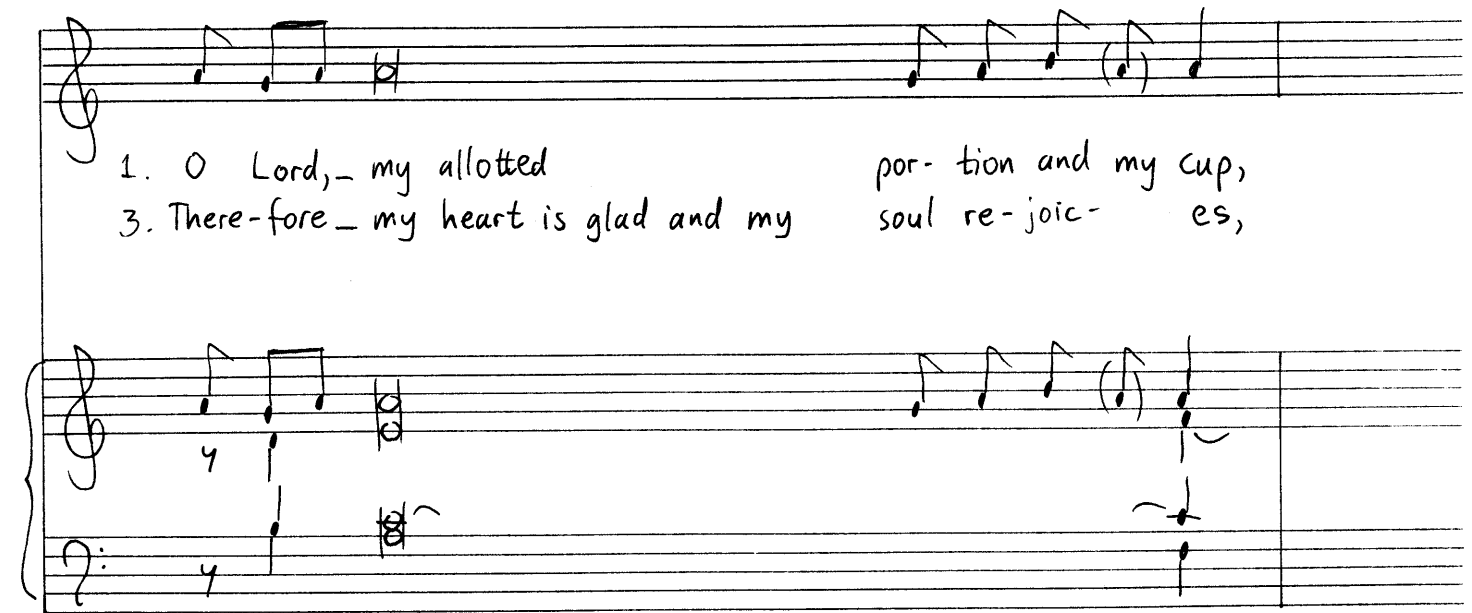 1. O Lord,_ my allotted por- tion and my cup,
3. There-fore_ my heart is glad and my soul re-joic- es,